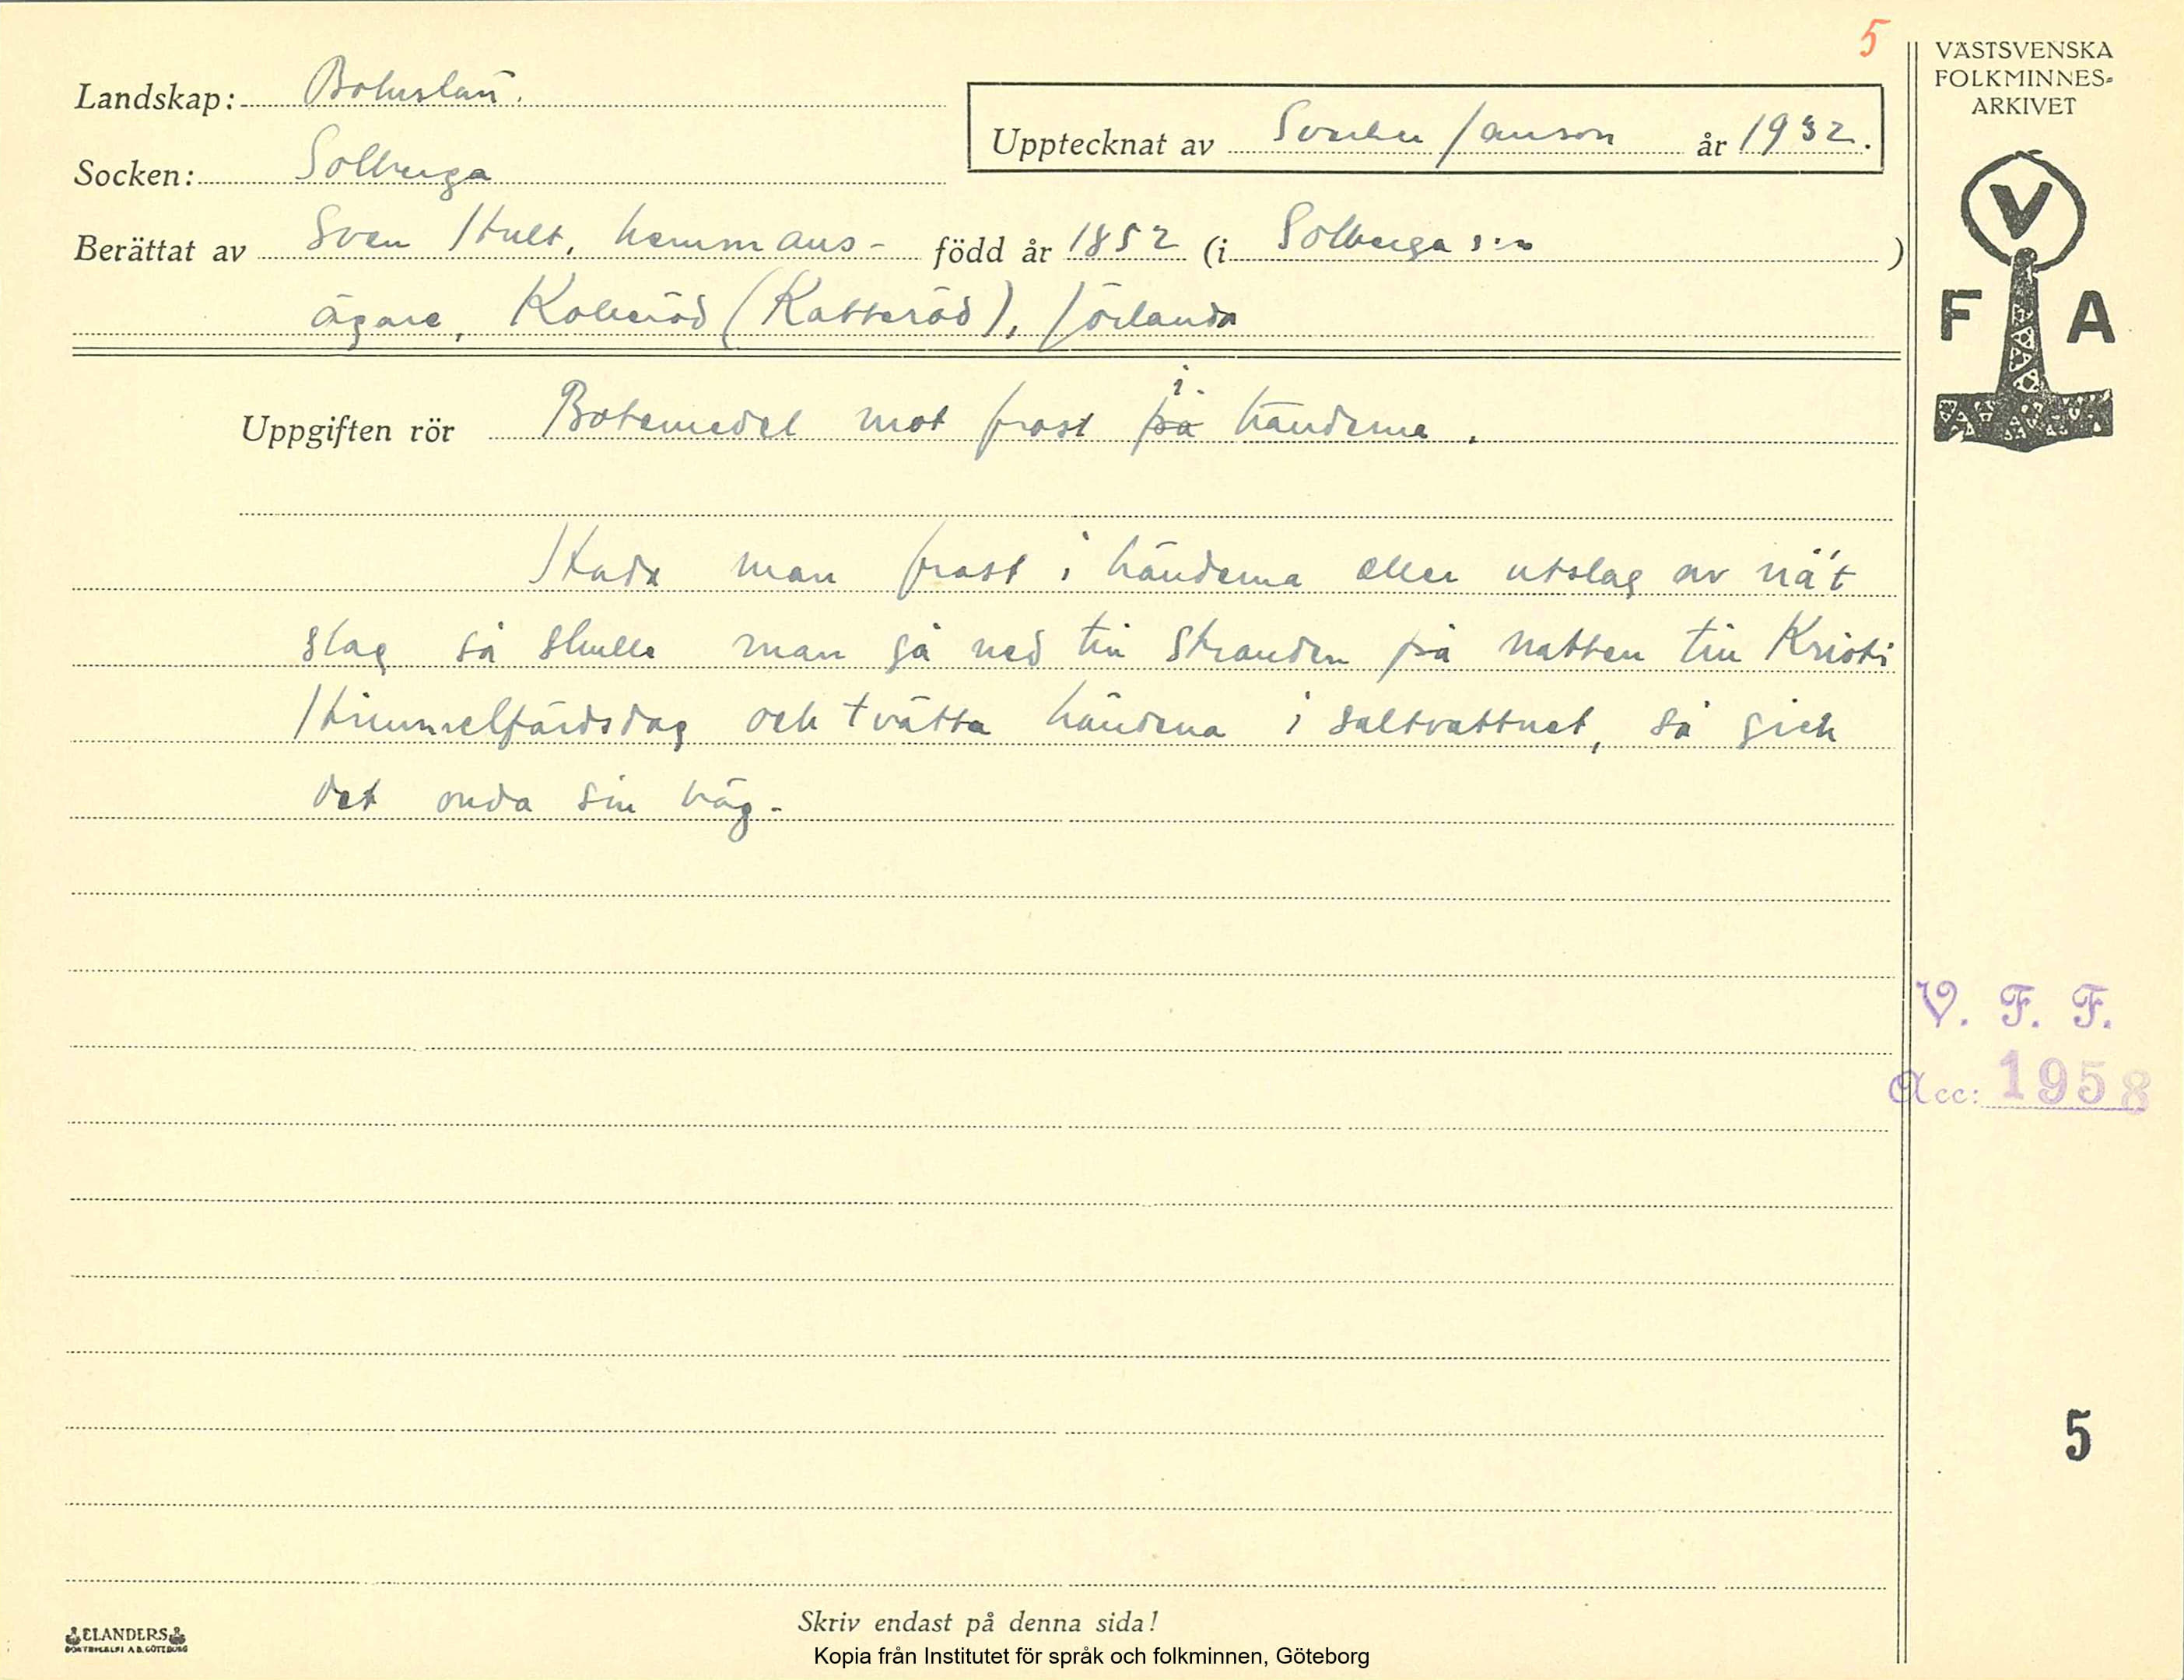 5
VÄSTSVENSKA
FOLKMINNES-
ARKIVET
Landskap: Bohuslän.
Upptecknat av Sverker Janson år 1932.
Socken: Solberga
Berättat av Sven Hult, hemmans- född år 1852 (i Solberga s:n)
ägare, Kolleröd (Katteröd), Jörlanda
V
F A
i
Uppgiften rör Botemedel mot frost på händerna.
Hade man frost i händerna eller utslag av nå't
slag så skulle man gå ned till stranden på natten till Kristi
Himmelfärdsdag och tvätta händerna i saltvattnet, så gick
det onda sin väg.
V. F. F.
Acc: 1958
5
Skriv endast på denna sida!
ELANDERS
BOKTRYCKERI A.B. GÖTEBORG
Kopia från Institutet för språk och folkminnen, Göteborg